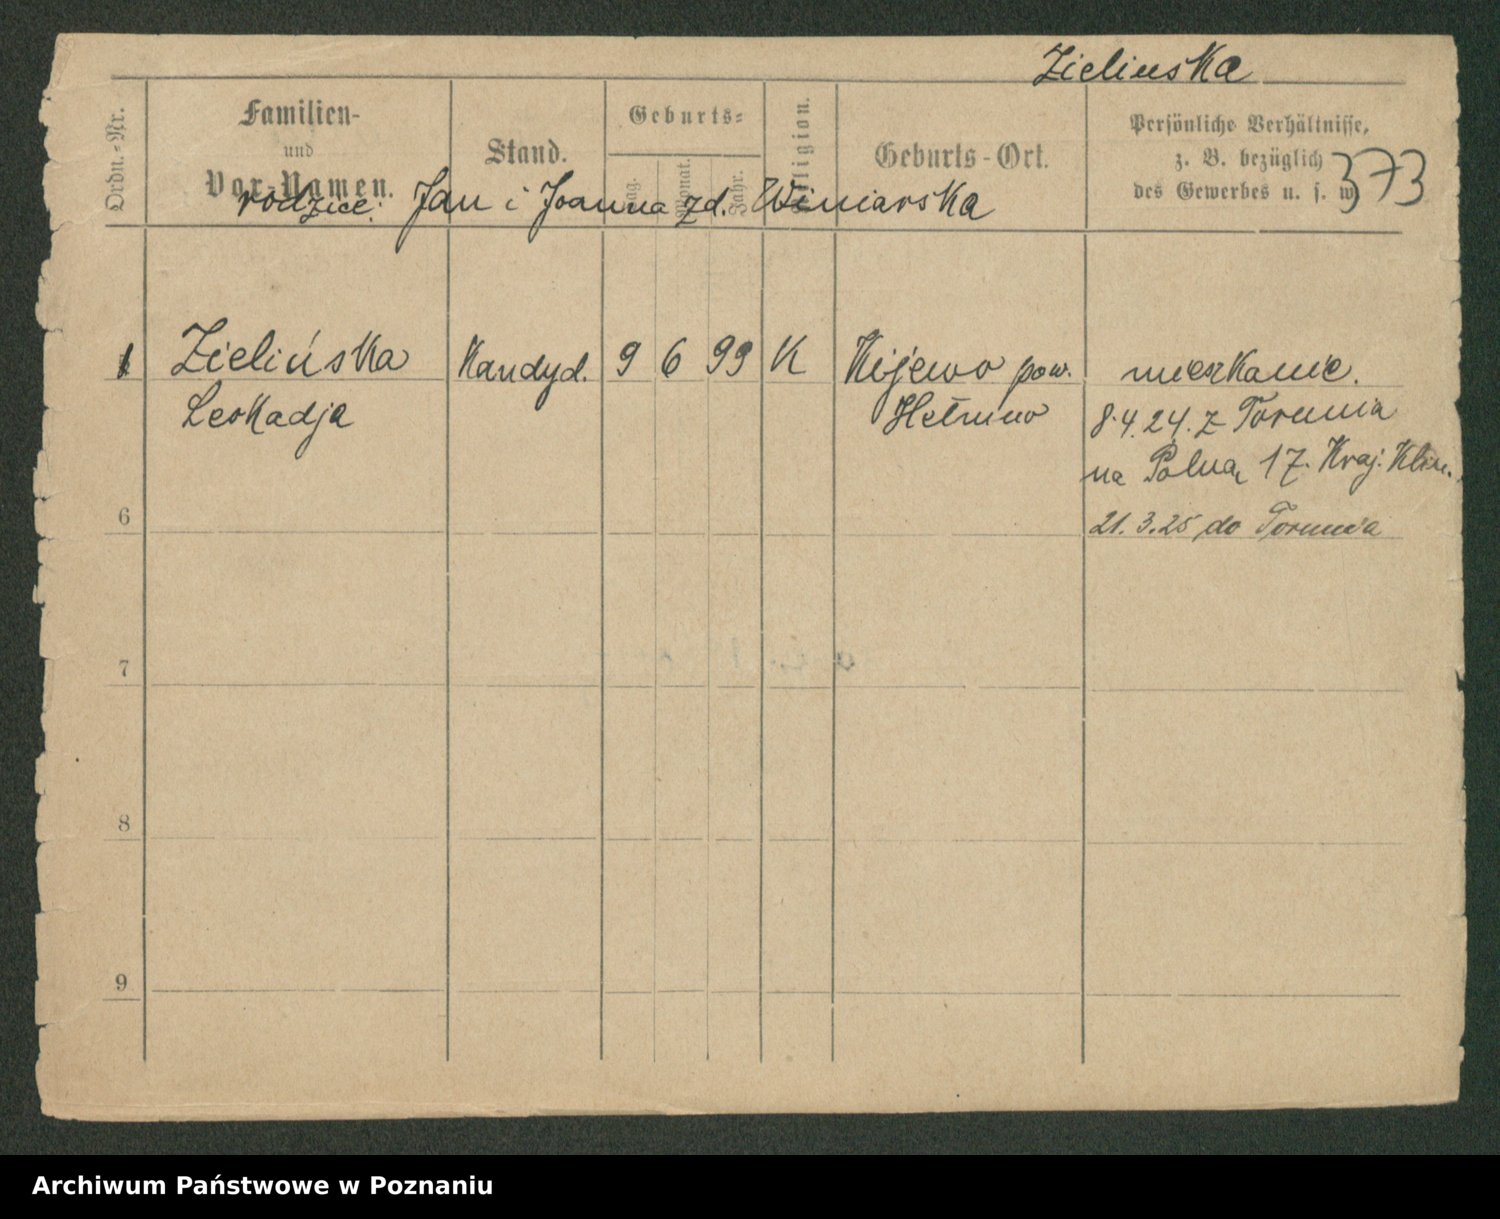 Zielinska
Ordn.-Nr.
Familien-
und
Vor-Namen.
Stand.
Geburts-
Tag.
Monat.
Jahr.
Religion.
Geburts-Ort.
Persönliche Verhältnisse,
z. B. bezüglich
des Gewerbes u. s. w.
373
rodzice: Jan i Joanna zd. Winiarska
1 Zielińska Kandyd. 9 6 99 K Kijewo pow. mieszkanie.
Leokadja Hełmno 8.4.24. z Torunia
na Polną 17. Kraj. Klin.
6 21.3.25 do Torunia
7
8
9
Archiwum Państwowe w Poznaniu